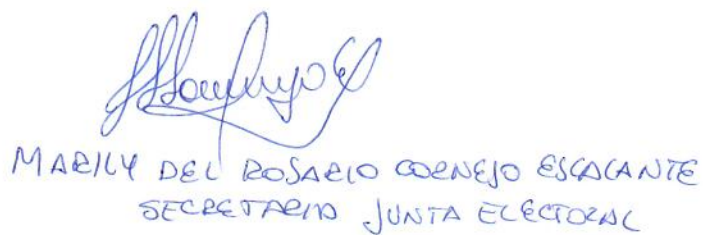 MARILY DEL ROSARIO CORNEJO ESCALANTE
SECRETARIA JUNTA ELECTORAL